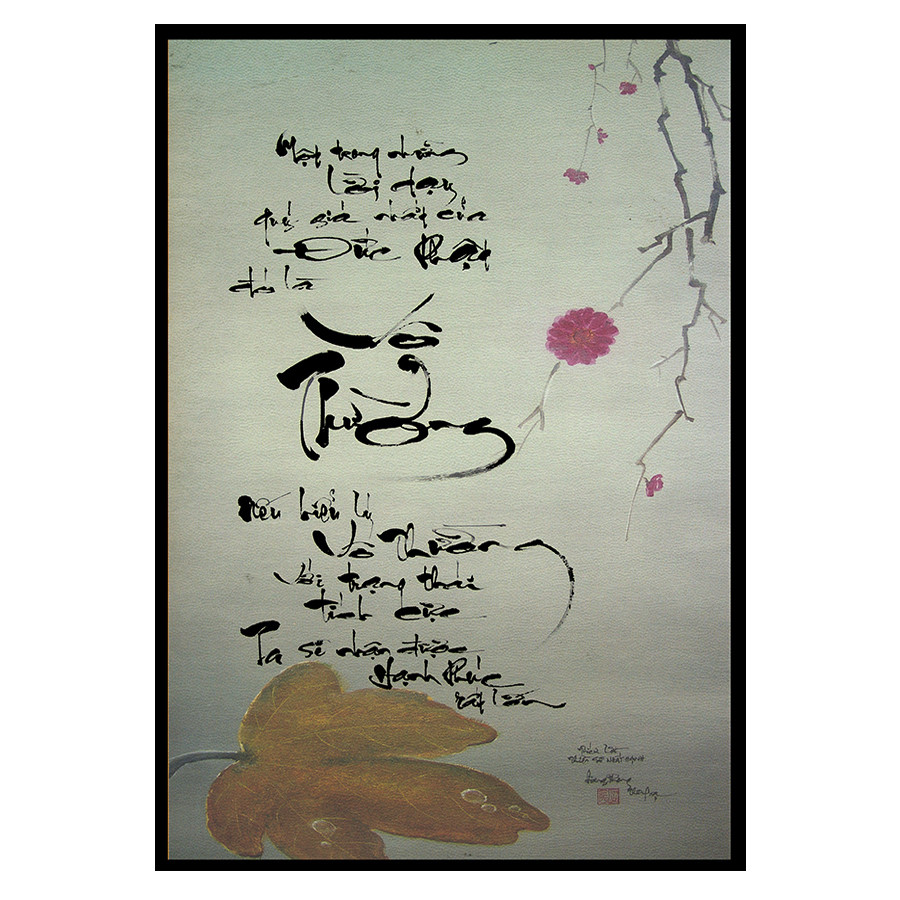 Một trong những
lời dạy
quý giá nhất của
Đức Phật
đó là
Vô
Thường
Nếu hiểu lý
Vô Thường
Với trạng thái
tích cực
Ta sẽ nhận được
Hạnh Phúc
rất lớn
Thiền sư NHẤT HẠNH